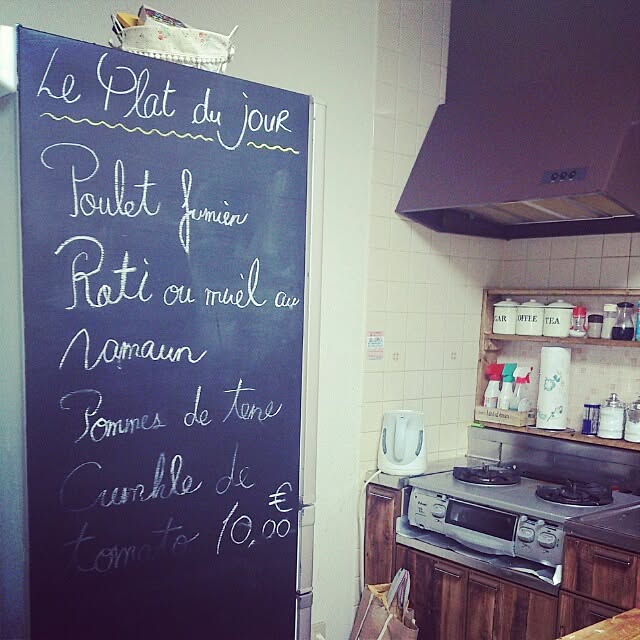 Le Plat du jour
Poulet fumier
Roti ou muèl au
ramaun
Pommes de tene
Cumhle de
tomato 10,00 €
COFFEE
TEA